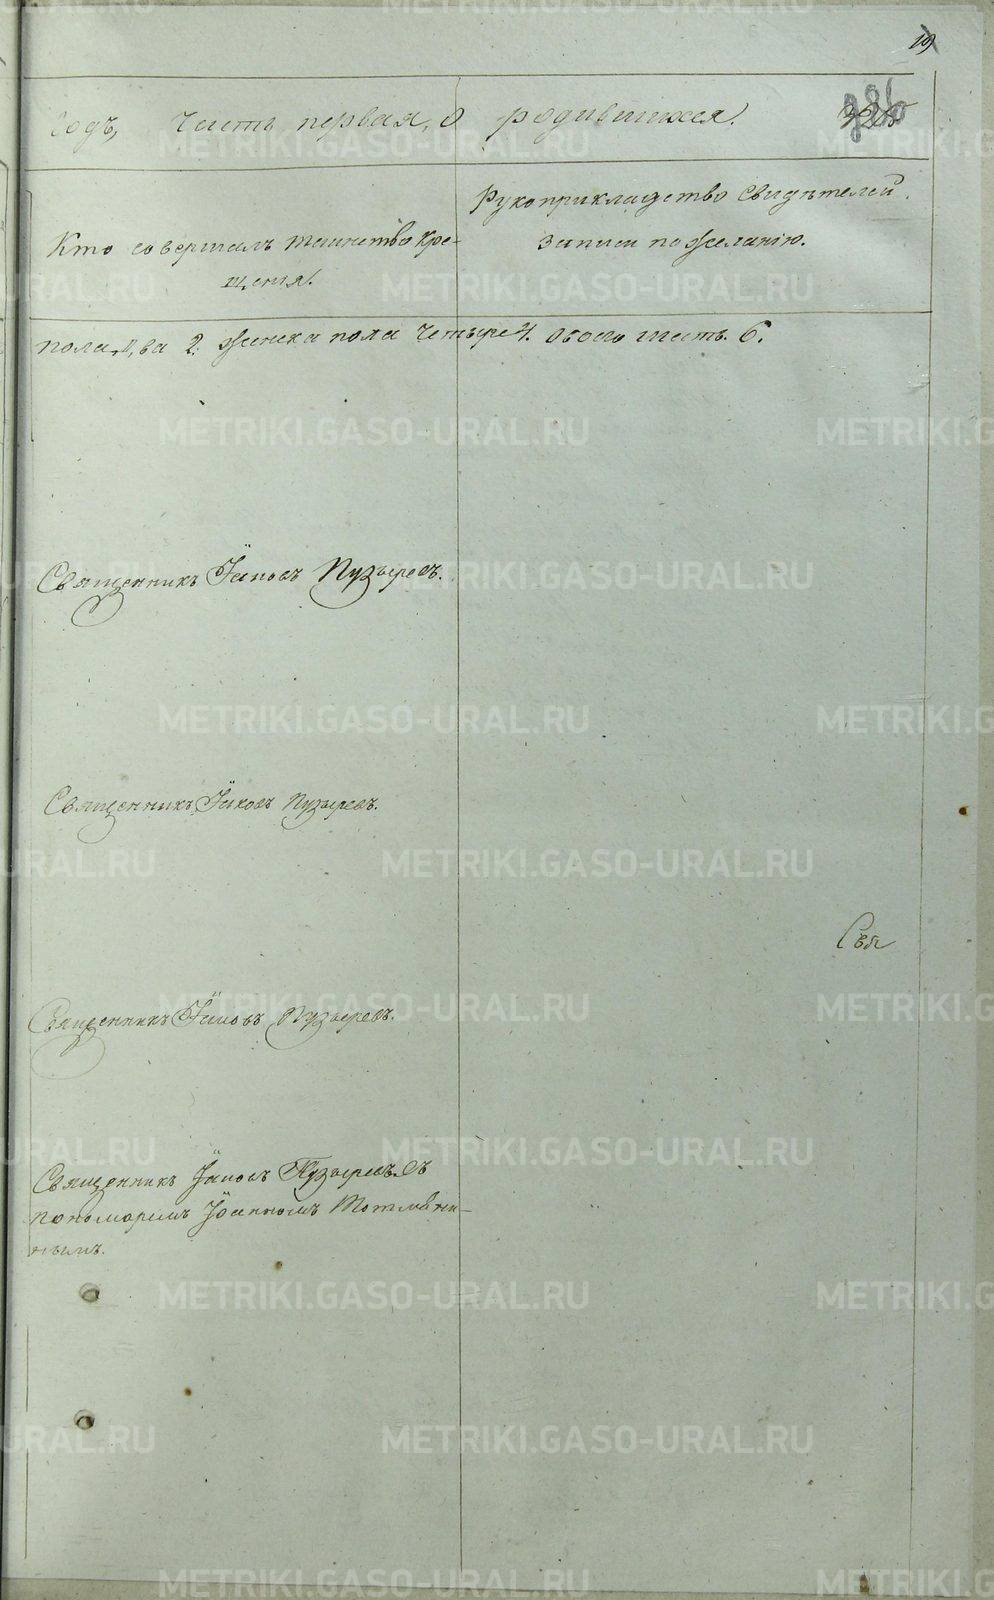 19
годъ, Часть первая, о родившихся.
Кто совершалъ таинство кре-
щенія.
Рукоприкладство свидѣтелей
записи по желанію.
пола, два 2. женска пола четыре 4. обоего шесть. 6.
Священникъ Іаковъ Пузыревъ.
Священникъ Іаковъ Пузыревъ.
Свя
Священникъ Іаковъ Пузыревъ.
Священникъ Іаковъ Пузыревъ съ
пономаремъ Іоанномъ
нымъ.
METRIKI.GASO-URAL.RU